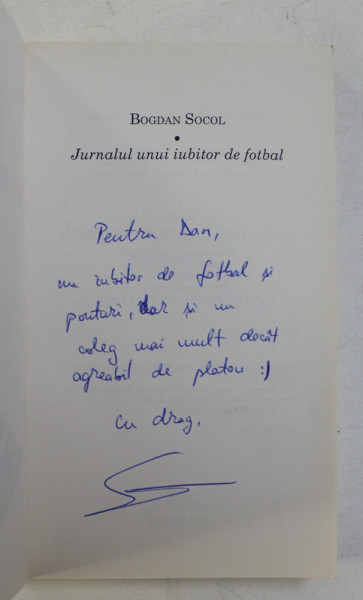 BOGDAN SOCOL
•
Jurnalul unui iubitor de fotbal
Pentru Dan,
un iubitor de fotbal și
ponturi, dar și un
coleg mai mult decât
agreabil de platou :)
cu drag,